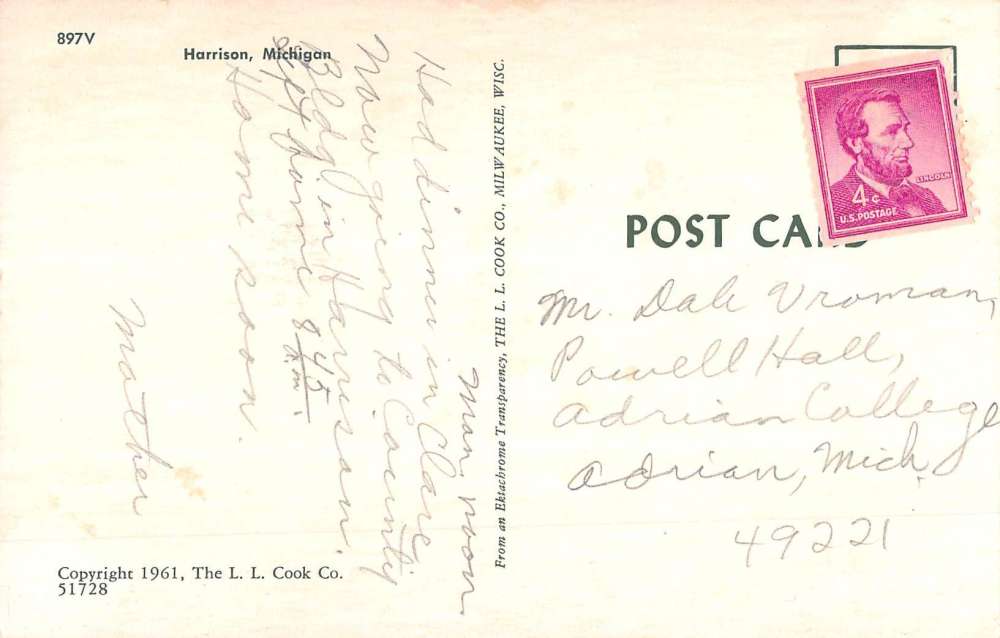 897V
Harrison, Michigan
Mon. noon.
Had dinner in Clare
Now going to County
Bldg in Harrison.
Left home 8 45 a.m.
Home soon.
Mother
Copyright 1961, The L. L. Cook Co.
51728
From an Ektachrome Transparency, THE L. L. COOK CO., MILWAUKEE, WISC.
LINCOLN
4¢
U.S. POSTAGE
POST CARD
Mr. Dale Vroman,
Powell Hall,
Adrian College
Adrian, Mich.
49221